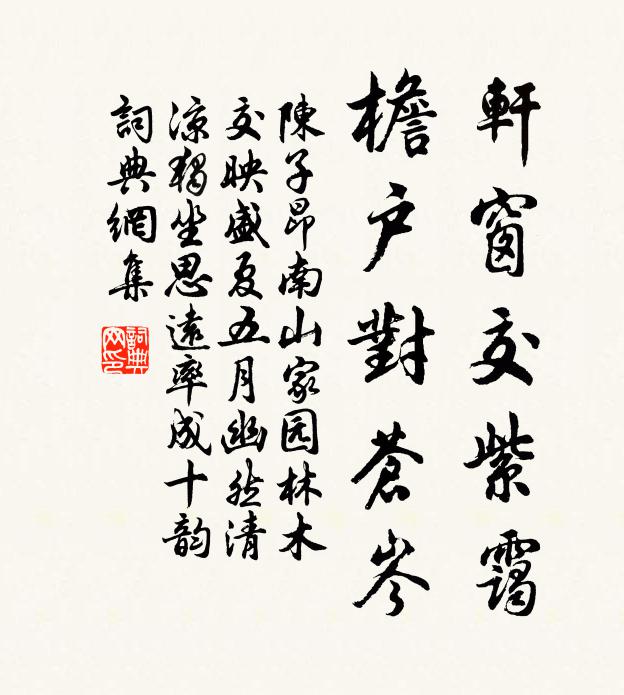 軒窗交紫靄
檐户對蒼岑
陳子昂南山家园林木
交映盛夏五月幽然清
凉獨坐思遠率成十韵
詞典網集
詞典网印